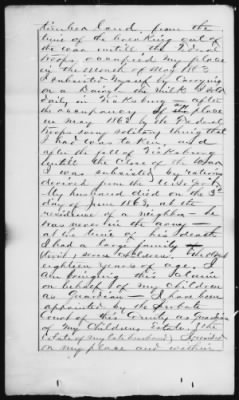 land, from the
time of the breaking out of
the war untill the Federal
troops occupied my place
in the month of May 1863
I subsisted myself by carrying
on a Dairy, the milk I sold
daily in Vicksburg – after
the occupancy of the place
in May 1863 by the Federal
troops every solitary thing that
I had was taken, and
after the fall of Vicksburg
untill the close of the war
I was subsisted by rations
derived from the U.S. Govt
My husband died on the 3d
day of June 1863, at the
residence of a neighbor – he
was never in the army –
at the time of his death
I had a large family
seven children, the oldest
eighteen years of age. I
am bringing this claim
on behalf of my children
as Guardian – I have been
appointed by the Probate
Court of this County as Guardian
of my Childrens Estate, (the
Estate of my late husband) I resided
on my place and within